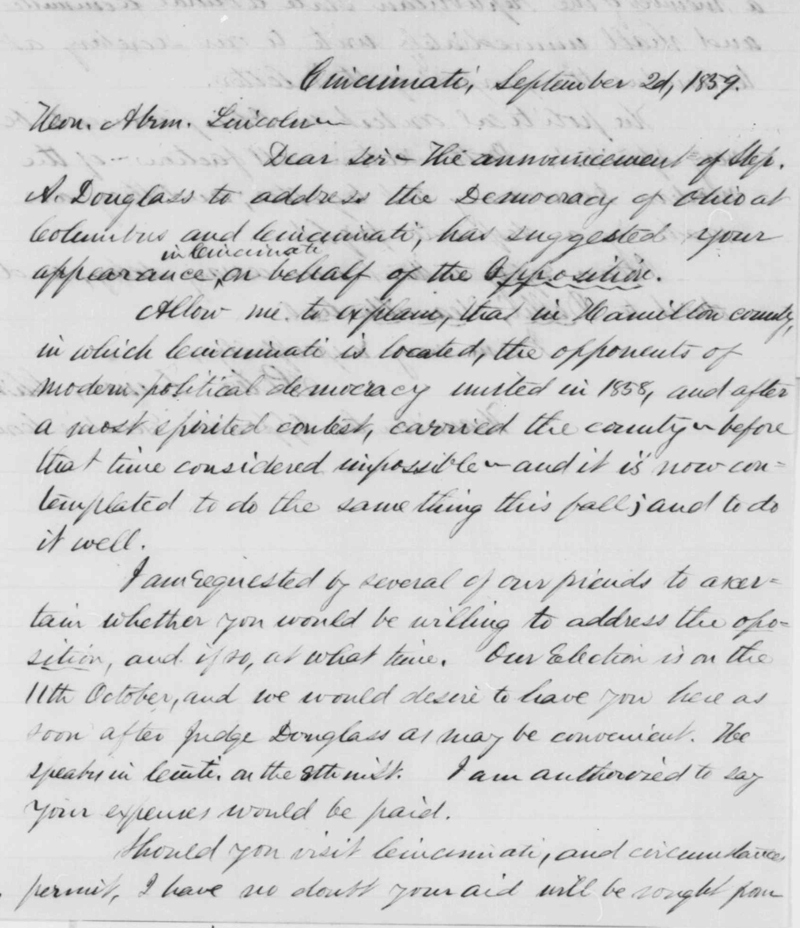 Cincinnati, September 2d, 1859.
Hon. Abrm. Lincoln—
Dear Sir— The announcement of Step.
A. Douglass to address the Democracy of Ohio at
Columbus and Cincinnati, has suggested your
in Cincinnati
appearance, on behalf of the Opposition.
Allow me to explain, that in Hamilton county,
in which Cincinnati is located, the opponents of
modern political democracy united in 1858, and after
a most spirited contest, carried the county— before
that time considered impossible— and it is now con=
templated to do the same thing this fall; and to do
it well.
I am requested by several of our friends to acer=
tain whether you would be willing to address the opo=
sition, and if so, at what time. Our Election is on the
11th October, and we would desire to have you here as
soon after Judge Douglass as may be convenient. He
speaks in Cinti. on the 8th inst. I am authorized to say
your expenses would be paid.
Should you visit Cincinnati, and circumstances
permit, I have no doubt your aid will be sought from